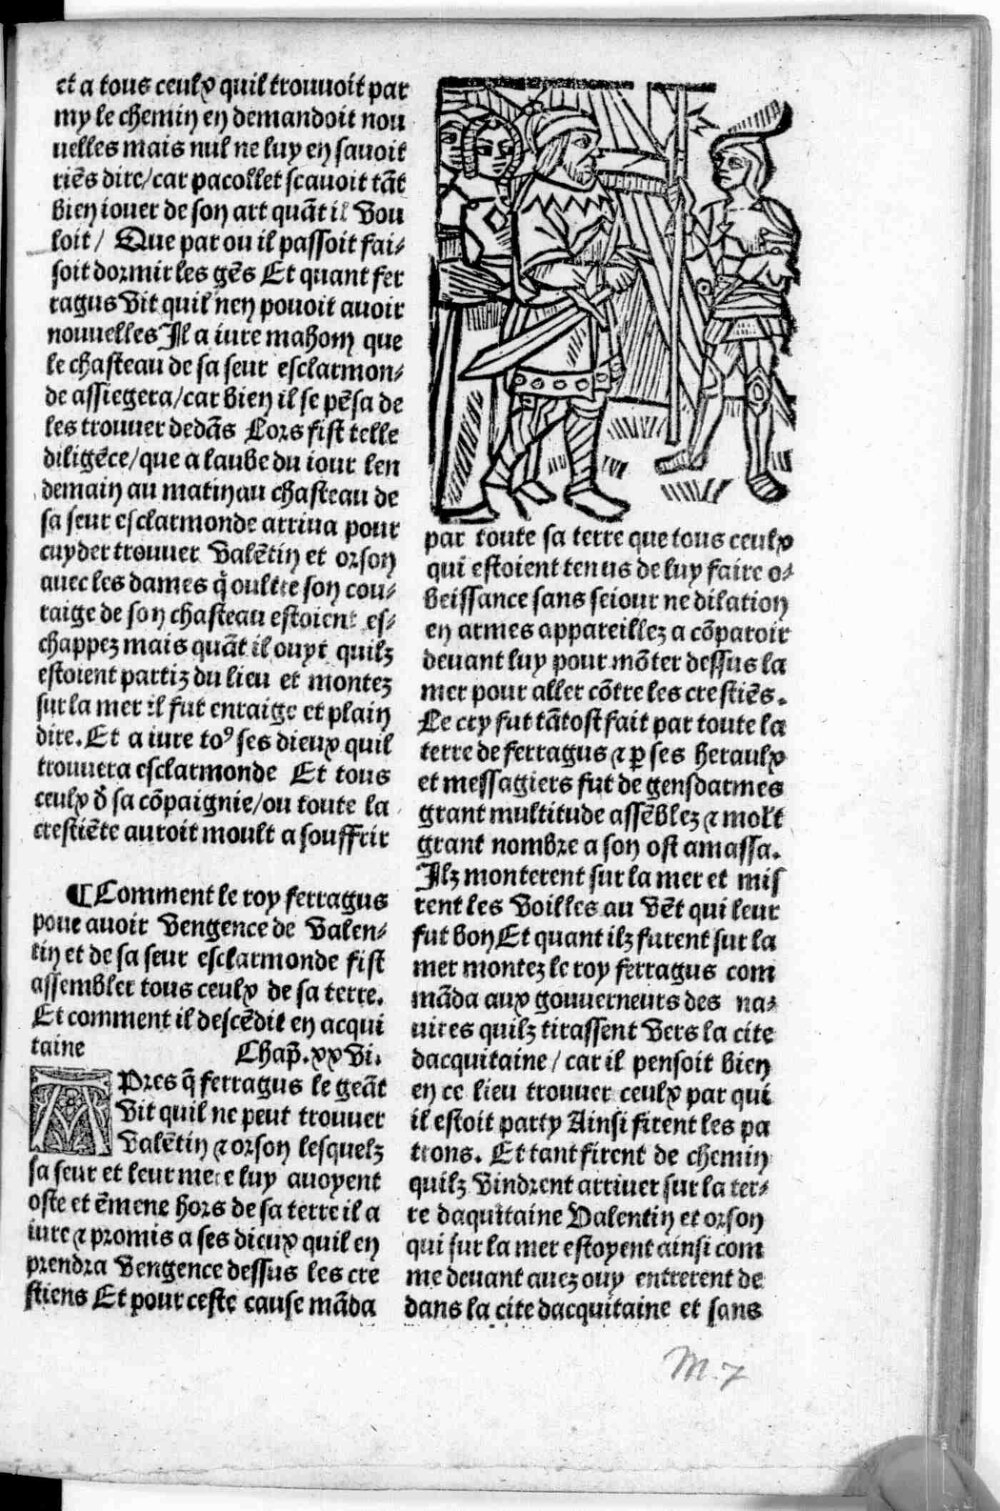 et a tous ceulx quil trouuoit par
my le chemin en demandoit nou
uelles mais nul ne luy en sauoit
riēs dire/car pacollet scauoit tāt
bien iouer de son art quāt il vou
loit/ Que par ou il passoit fai⸗
soit dormir les gēs Et quant fer
ragus vit quil nen pouoit auoir
nouuelles Il a iure mahom que
le chasteau de sa seur esclarmon⸗
de assiegera/car bien il se pēsa de
les trouuer dedās Lors fist telle
diligēce/que a laube du iour len
demain au matin au chasteau de
sa seur esclarmonde arriua pour
cuyder trouuer valētin et orson
auec les dames q̄ oultre son cou⸗
raige de son chasteau estoient es⸗
chappez mais quāt il ouyt quilz
estoient partiz du lieu et montez
sur la mer il fut enraige et plain
dire. Et a iure to⁹ ses dieux quil
trouuera esclarmonde Et tous
ceulx d̄ sa cōpaignie/ou toute la
crestiēte auroit moult a souffrir
¶Comment le roy ferragus
pour auoir vengence de valen⸗
tin et de sa seur esclarmonde fist
assembler tous ceulx de sa terre.
Et comment il descēdit en acqui
taine Chap̄. xxvi.
APres q̄ ferragus le geāt
vit quil ne peut trouuer
valētin ⁊ orson lesquelz
sa seur et leur mere luy auoyent
oste et ēmene hors de sa terre il a
iure ⁊ promis a ses dieux quil en
prendra vengence dessus les cre
stiens Et pour ceste cause māda
par toute sa terre que tous ceulx
qui estoient tenus de luy faire o⸗
beissance sans seiour ne dilation
en armes appareillez a cōparoir
deuant luy pour mōter dessus la
mer pour aller cōtre les crestiēs.
Le cry fut tātost fait par toute la
terre de ferragus ⁊ ꝑ ses heraulx
et messagiers fut de gensdarmes
grant multitude assēblez ⁊ molt
grant nombre a son ost amassa.
Ilz monterent sur la mer et mis
rent les voilles au vēt qui leur
fut bon Et quant ilz furent sur la
mer montez le roy ferragus com
māda aux gouuerneurs des na⸗
uires quilz tirassent vers la cite
dacquitaine/car il pensoit bien
en ce lieu trouuer ceulx par qui
il estoit party Ainsi firent les pa
trons. Et tant firent de chemin
quilz vindrent arriuer sur la ter⸗
re daquitaine Valentin et orson
qui sur la mer estoyent ainsi com
me deuant auez ouy entrerent de
dans la cite dacquitaine et sans
M.7